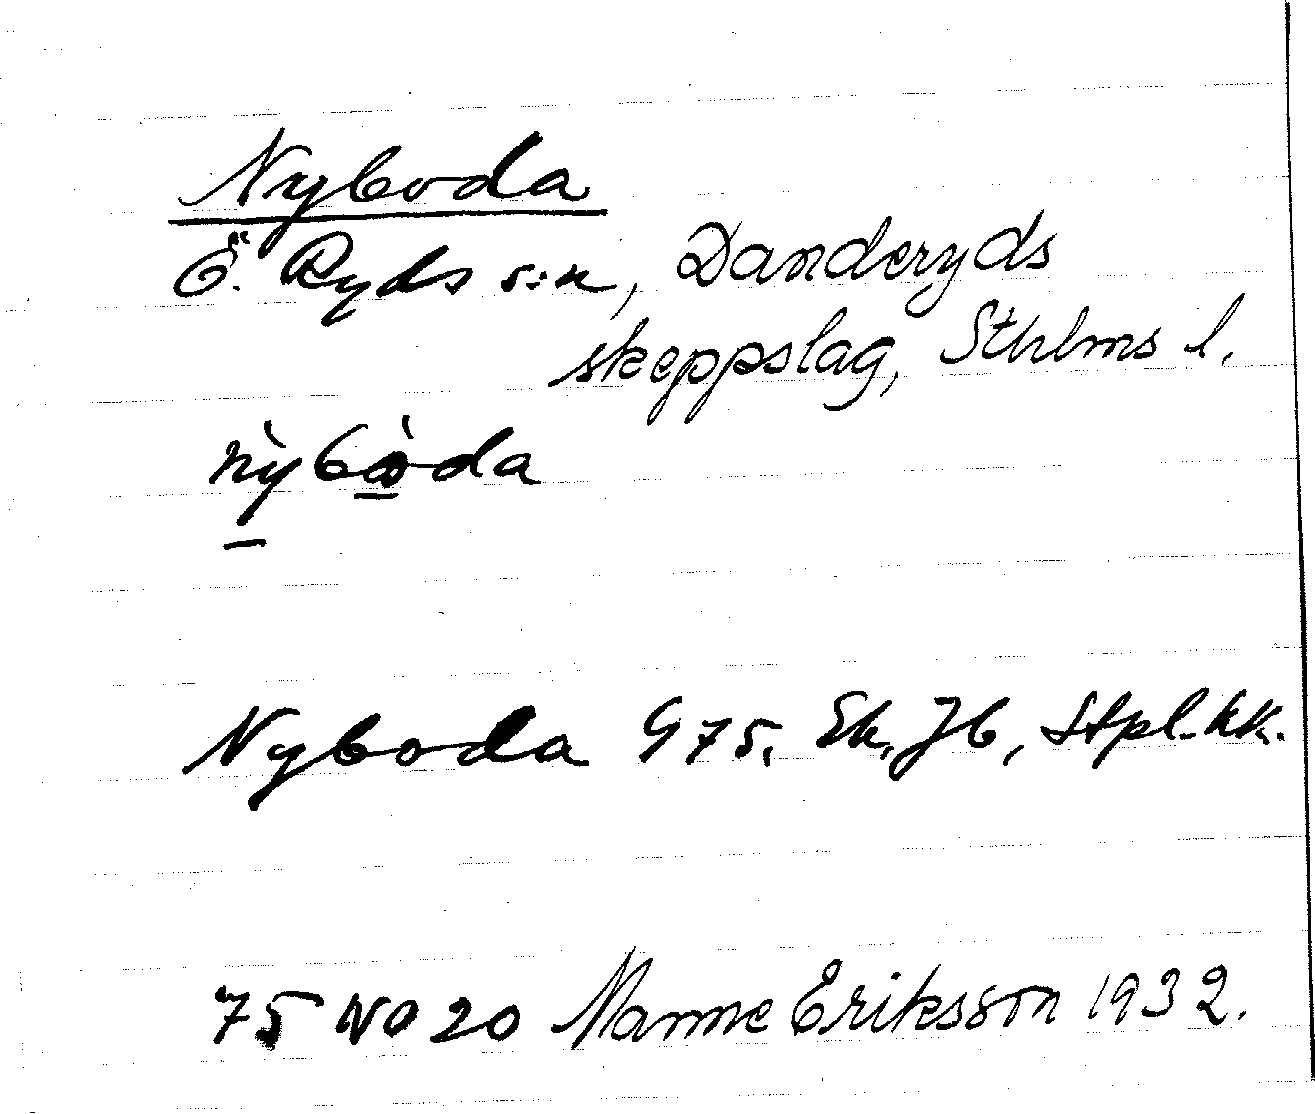 Nyboda
Ö. Ryds s:n, Danderyds
skeppslag, Sthlms l.
nỳbòda
Nyboda G 75. Ek, Jb, Stpl.hk.
75 NO 20 Manne Eriksson 1932.